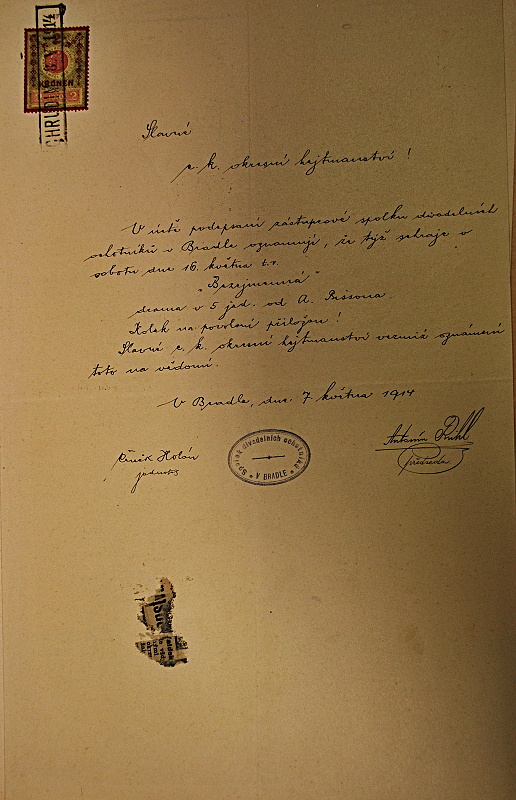 CHRUDIM 8 V 1914
KRONEN
2
Slavné
c. k. okresní hejtmanství!
V úctě podepsaní zástupcové spolku divadelních
ochotníků v Bradle oznamují, že týž sehraje v
sobotu dne 16. května t. r.
"Bezejmenná"
drama v 5 jed. od A. Bissona.
Kolek na povolení přiložen!
Slavné c. k. okresní hejtmanství vezmiž oznámení
toto na vědomí.
V Bradle, dne 7. května 1914
Antonín
předseda
Holán
jednatel
Spolek divadelních ochotníků
V BRADLE